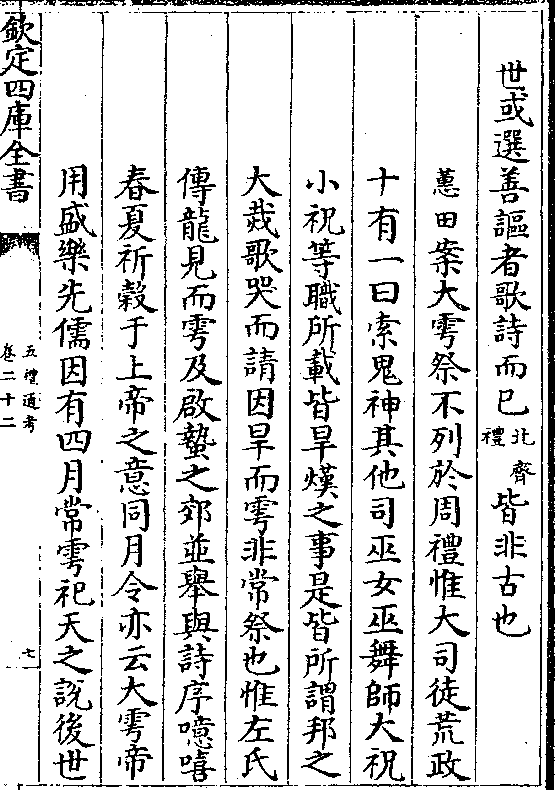 世或選善謳者歌詩而已北齊禮皆非古也
蕙田案大雩祭不列於周禮惟大司徒荒政
十有一曰索鬼神其他司巫女巫舞師大祝
小祝等職所載皆旱熯之事是皆所謂邦之
大烖歌哭而請因旱而雩非常祭也惟左氏
傳龍見而雩及啟蟄之郊並舉與詩序噫嘻
春夏祈榖于上帝之意同月令亦云大雩帝
用盛樂先儒因有四月常雩祀天之説後世
欽定四庫全書
五禮通考
卷二十二
七